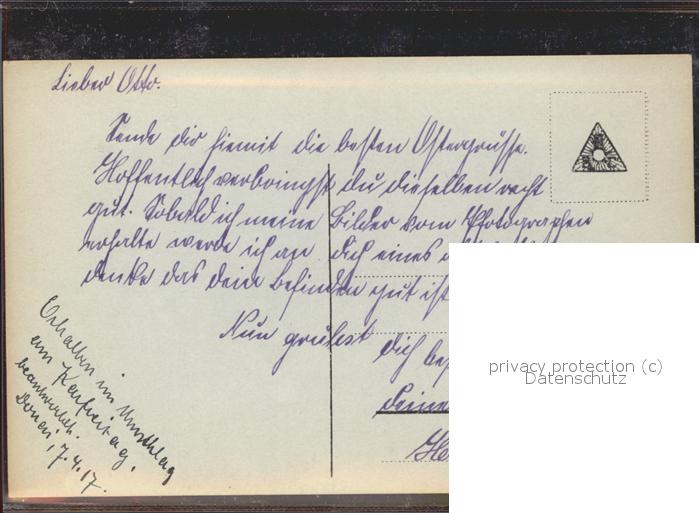 Lieber Otto.
Sende dir hiemit die besten Ostergrüsse.
Hoffentlich verbringst du dieselben recht
gut. Sobald ich meine Bilder vom Photographen
erhalte werde ich an dich eines
denke das dein Befinden gut ist
Nun grüsst
dich
Deine
Erhalten im Umschlag
am Karfreitag.
beantwortet.
7.4.17.
privacy protection (c)
Datenschutz